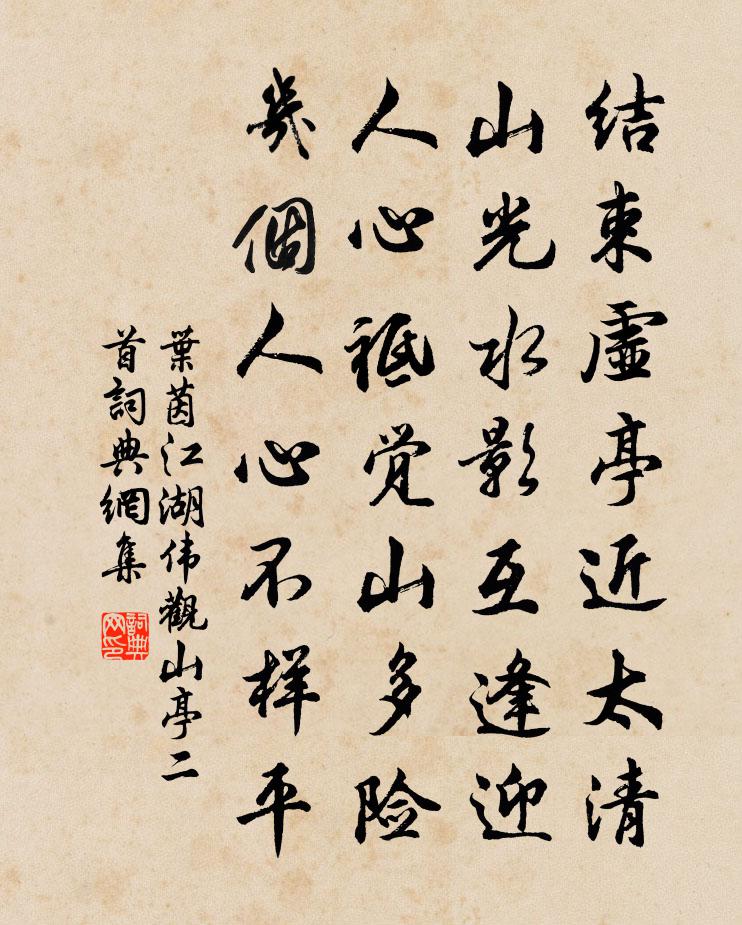 结束虛亭近太清
山光水影互逢迎
人心祗觉山多险
幾個人心不样平
葉茵江湖伟觀山亭二
首詞典網集
詞典网印